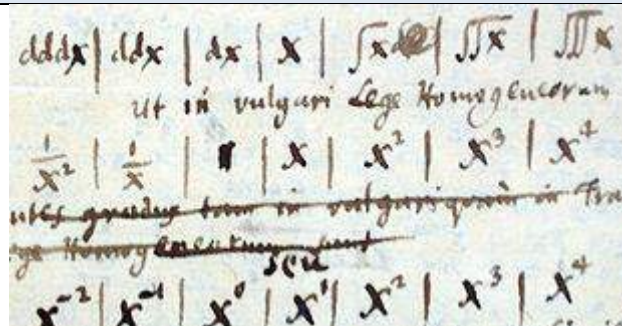 dddx | ddx | dx | x | ∫x | ∫∫x | ∫∫∫x
Ut in vulgari Lege Homogeneorum
1/x² | 1/x | 1 | x | x² | x³ | x⁴
gradus tam in vulgari quam in Tra
ge Homogeneorum sunt
seu
x⁻² | x⁻¹ | x⁰ | x¹ | x² | x³ | x⁴